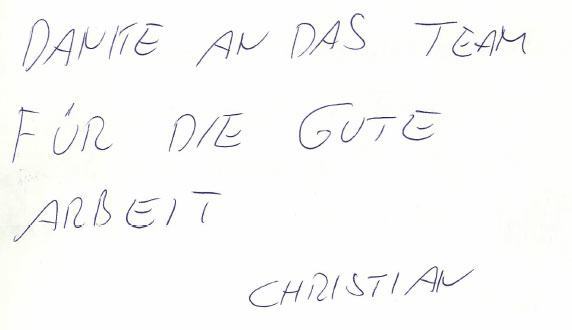 DANKE AN DAS TEAM
FÜR DIE GUTE
ARBEIT
CHRISTIAN